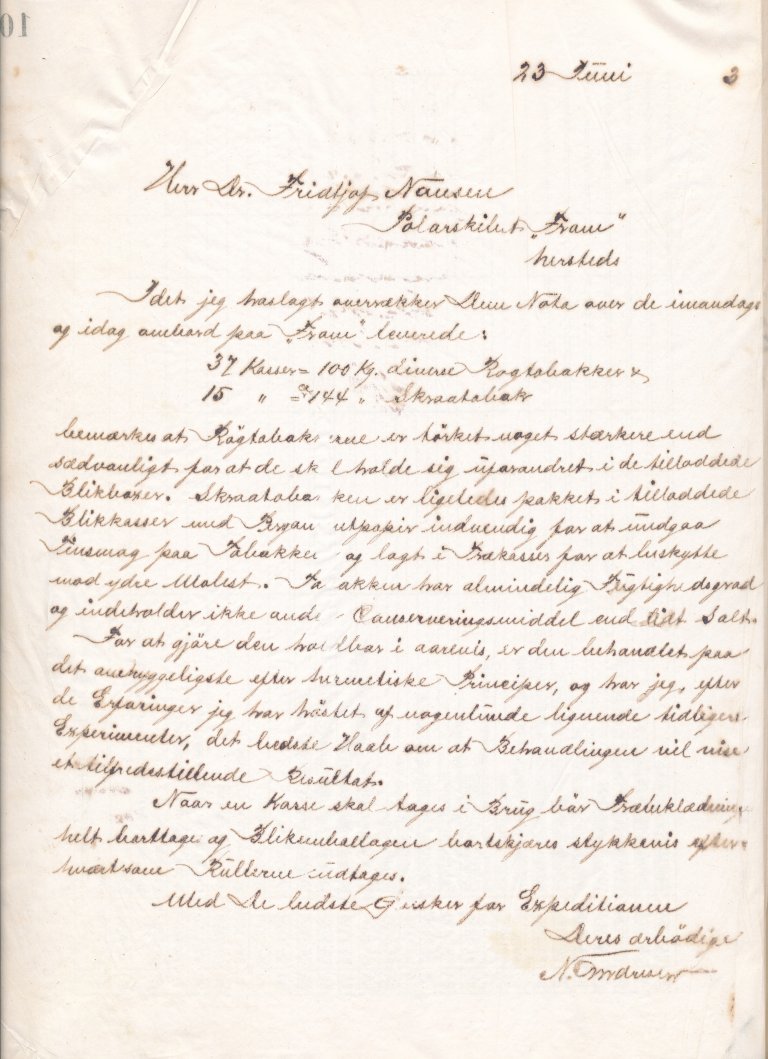 23 Juni 3
Herr Dr. Fridtjof Nansen
Polarskibet "Fram"
hersteds
Idet jeg hoslagt overrækker Dem Nota over de imandags
og idag ombord paa "Fram" leverede:
37 Kasser = 100 Kg. diverse Rögtobakker &
15 " = 144 " Skraatobak
bemærkes at Rögtobak rne er törket noget stærkere end
sædvanligt for at de sk l holde sig uforandret i de tilloddede
Blikboxer. Skraatoba ken er ligeledes pakket i tilloddede
Blikkasser med Pergam ntpapir indvendig for at undgaa
Tinsmag paa Tobakke og lagt i Trækasser for at beskytte
mod ydre Molest. To akken har almindelig Fugtighedsgrad
og indeholder ikke ande Conserveringsmiddel end lidt Salt.
For at gjöre den holdbar i aarevis, er den behandlet paa
det omhyggeligste efter hermetiske Principer, og har jeg, efter
de Erfaringer jeg har höstet af nogenlunde lignende tidligere
Experimenter, det bedste Haab om at Behandlingen vil vise
et tilfredsstillende Resultat.
Naar en Kasse skal tages i Brug bör Træbeklædning
helt borttages og Blikemballagen bortskjæres stykkevis efter
hvert som Rullerne udtages.
Med De bedste Önsker for Expeditionen
Deres ærbödige
N.